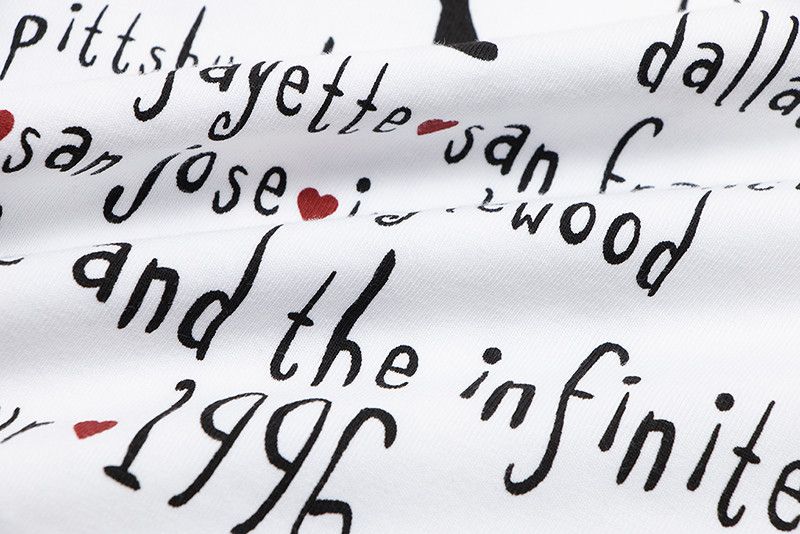 pittsbu dalla
fayette ♥ san
♥ san jose ♥ wood
and the infinite
♥ 1996